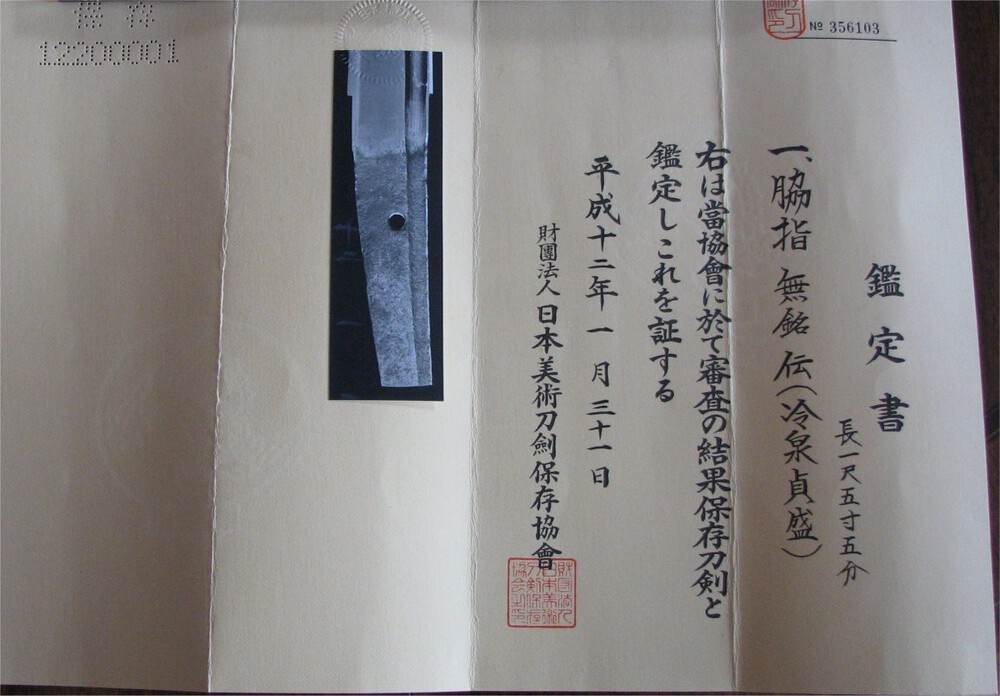 № 356103
鑑定書
長一尺五寸五分
一、脇指 無銘 伝(冷泉貞盛)
右は當協會に於て審査の結果保存刀剣と
鑑定しこれを証する
平成十二年一月三十一日
財團法人日本美術刀劍保存協會
財団法人
日本美術
刀剣保存
協会之印
保存
12200001